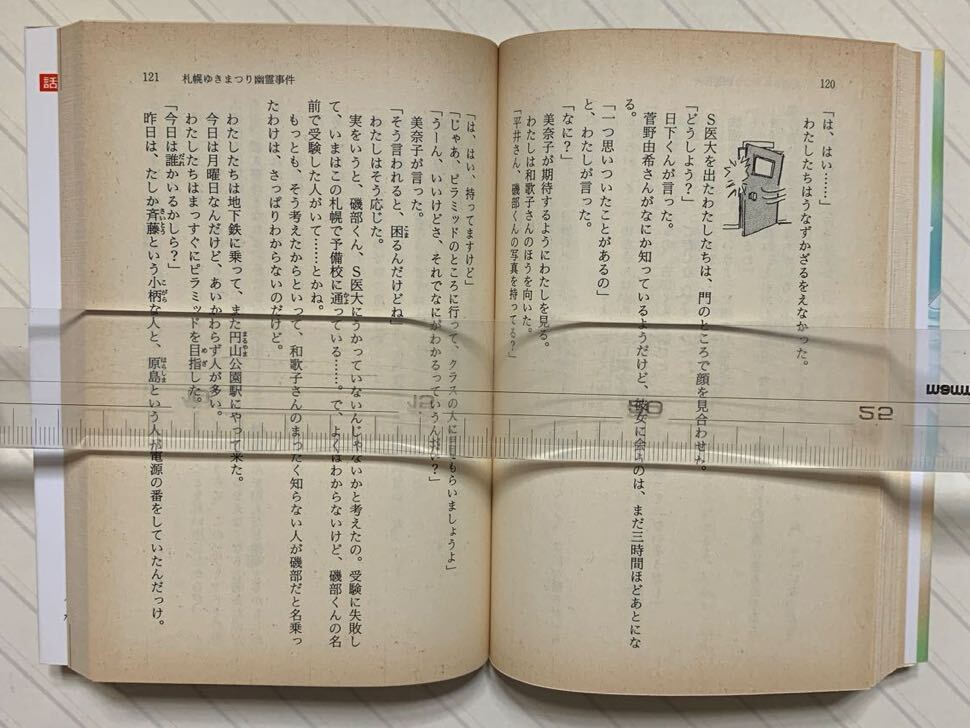 120
「は、はい……」
わたしたちはうなずかざるをえなかった。
S医大を出たわたしたちは、門のところで顔を見合わせた。
「どうしよう？」
日下くんが言った。
菅野由希さんがなにか知っているようだけど、彼女に会うのは、まだ三時間ほどあとにな
る。
「一つ思いついたことがあるの」
と、わたしが言った。
「なに？」
美奈子が期待するようにわたしを見る。
わたしは和歌子さんのほうを向いた。
「平井さん、磯部くんの写真を持ってる？」
121 札幌ゆきまつり幽霊事件
「は、はい、持ってますけど」
「じゃあ、ピラミッドのところに行って、クラスの人に見てもらいましょうよ」
「うーん、いいけどさ、それでなにがわかるっていうんだい？」
美奈子が言った。
「そう言われると、困るんだけどね」
わたしはそう応じた。
実をいうと、磯部くん、S医大にうかっていないんじゃないかと考えたの。受験に失敗し
て、いまはこの札幌で予備校に通っている……。で、よくはわからないけど、磯部くんの名
前で受験した人がいて……とかね。
もっとも、そう考えたからといって、和歌子さんのまったく知らない人が磯部だと名乗っ
たわけは、さっぱりわからないのだけど。
わたしたちは地下鉄に乗って、また円山公園駅にやって来た。
今日は月曜日なんだけど、あいかわらず人が多い。
わたしたちはまっすぐにピラミッドを目指した。
「今日は誰かいるかしら？」
昨日は、たしか斉藤という小柄な人と、原島という人が電源の番をしていたんだっけ。
話
50
52